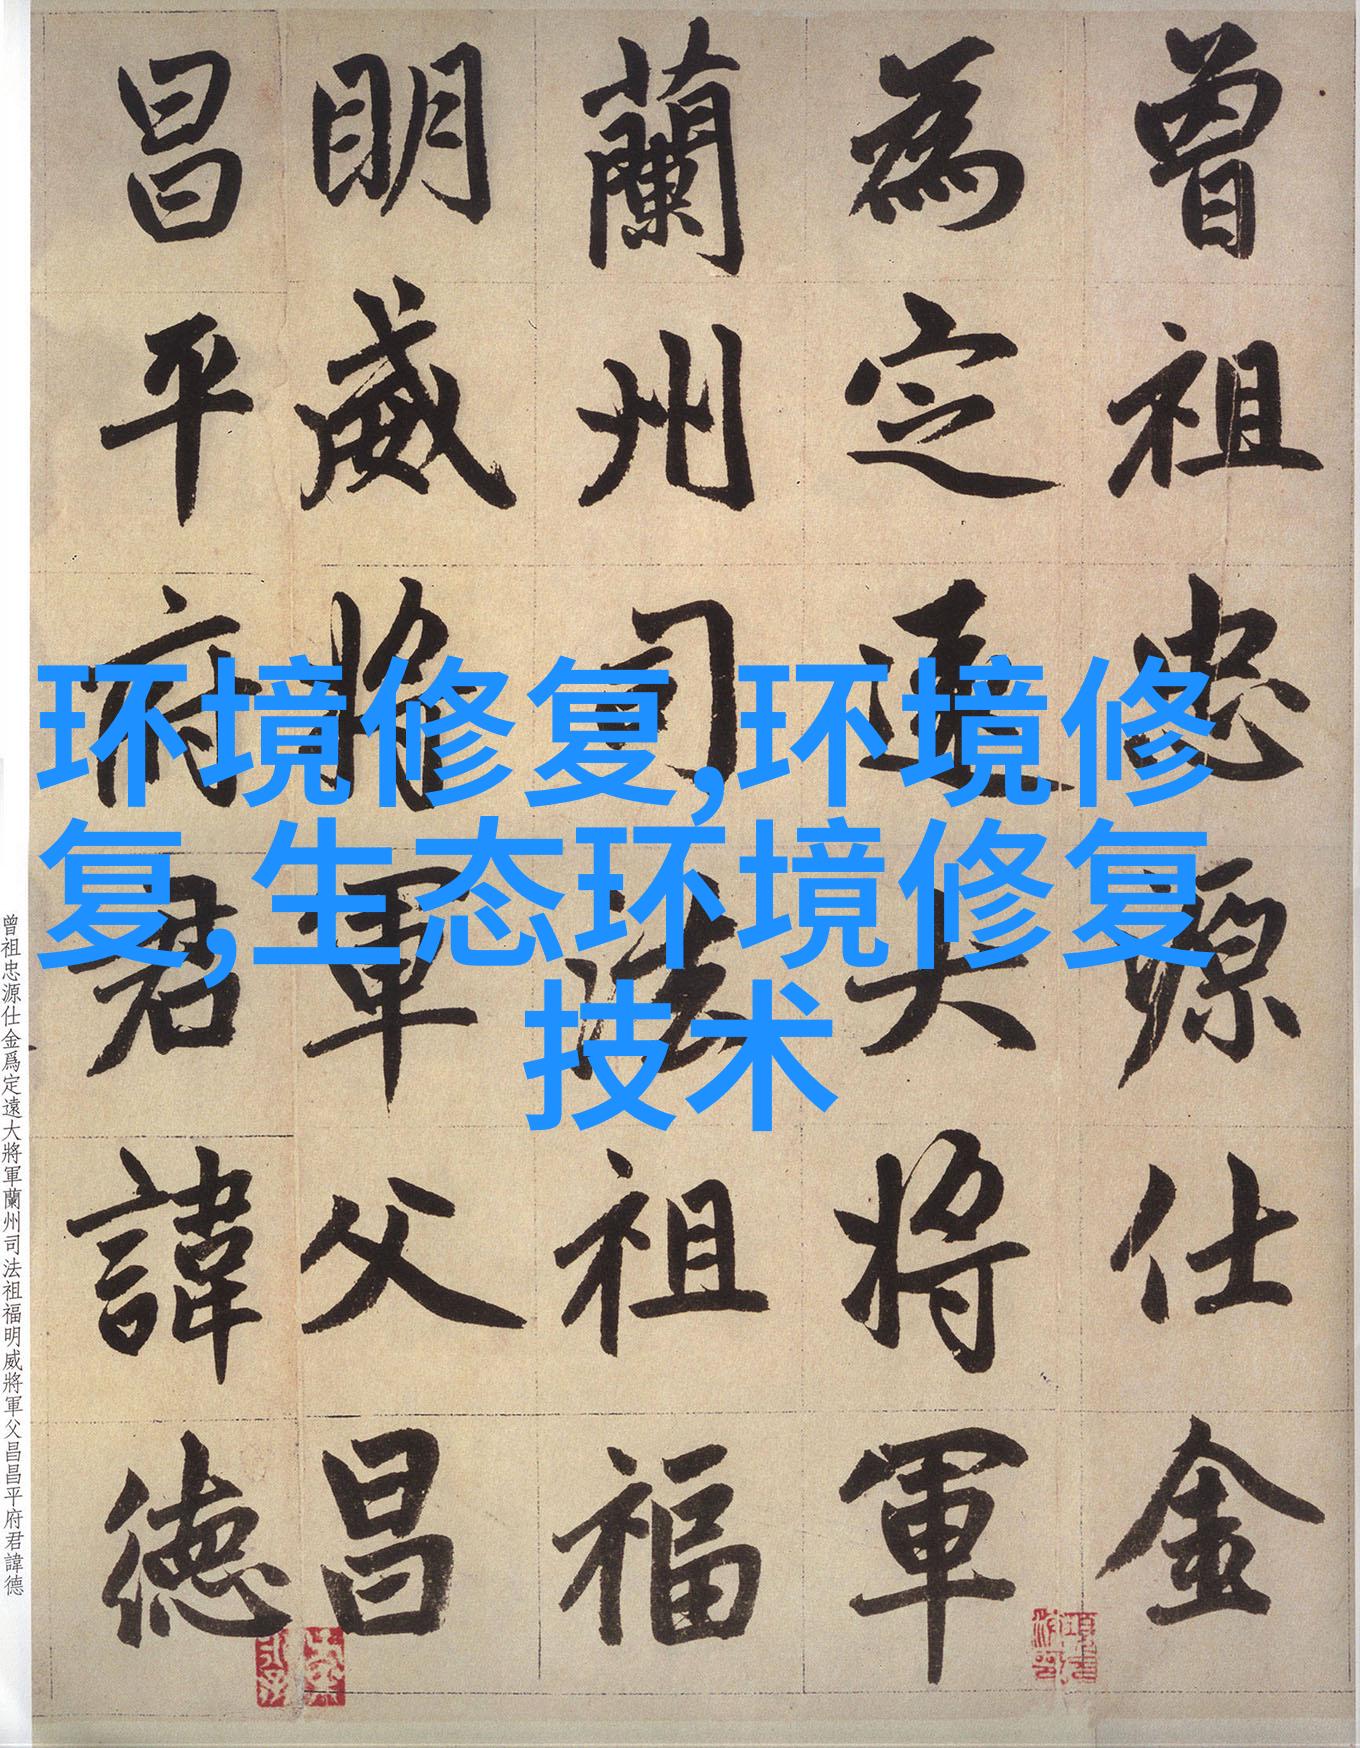 曾祖忠源仕金
為定遠大将軍
蘭州司法祖福
明威将軍父昌
昌平府君諱德
环境修复,环境修
复,生态环境修复
技术
曾祖忠源仕金爲定遠大將軍蘭州司法祖福明威將軍父昌昌平府君諱德